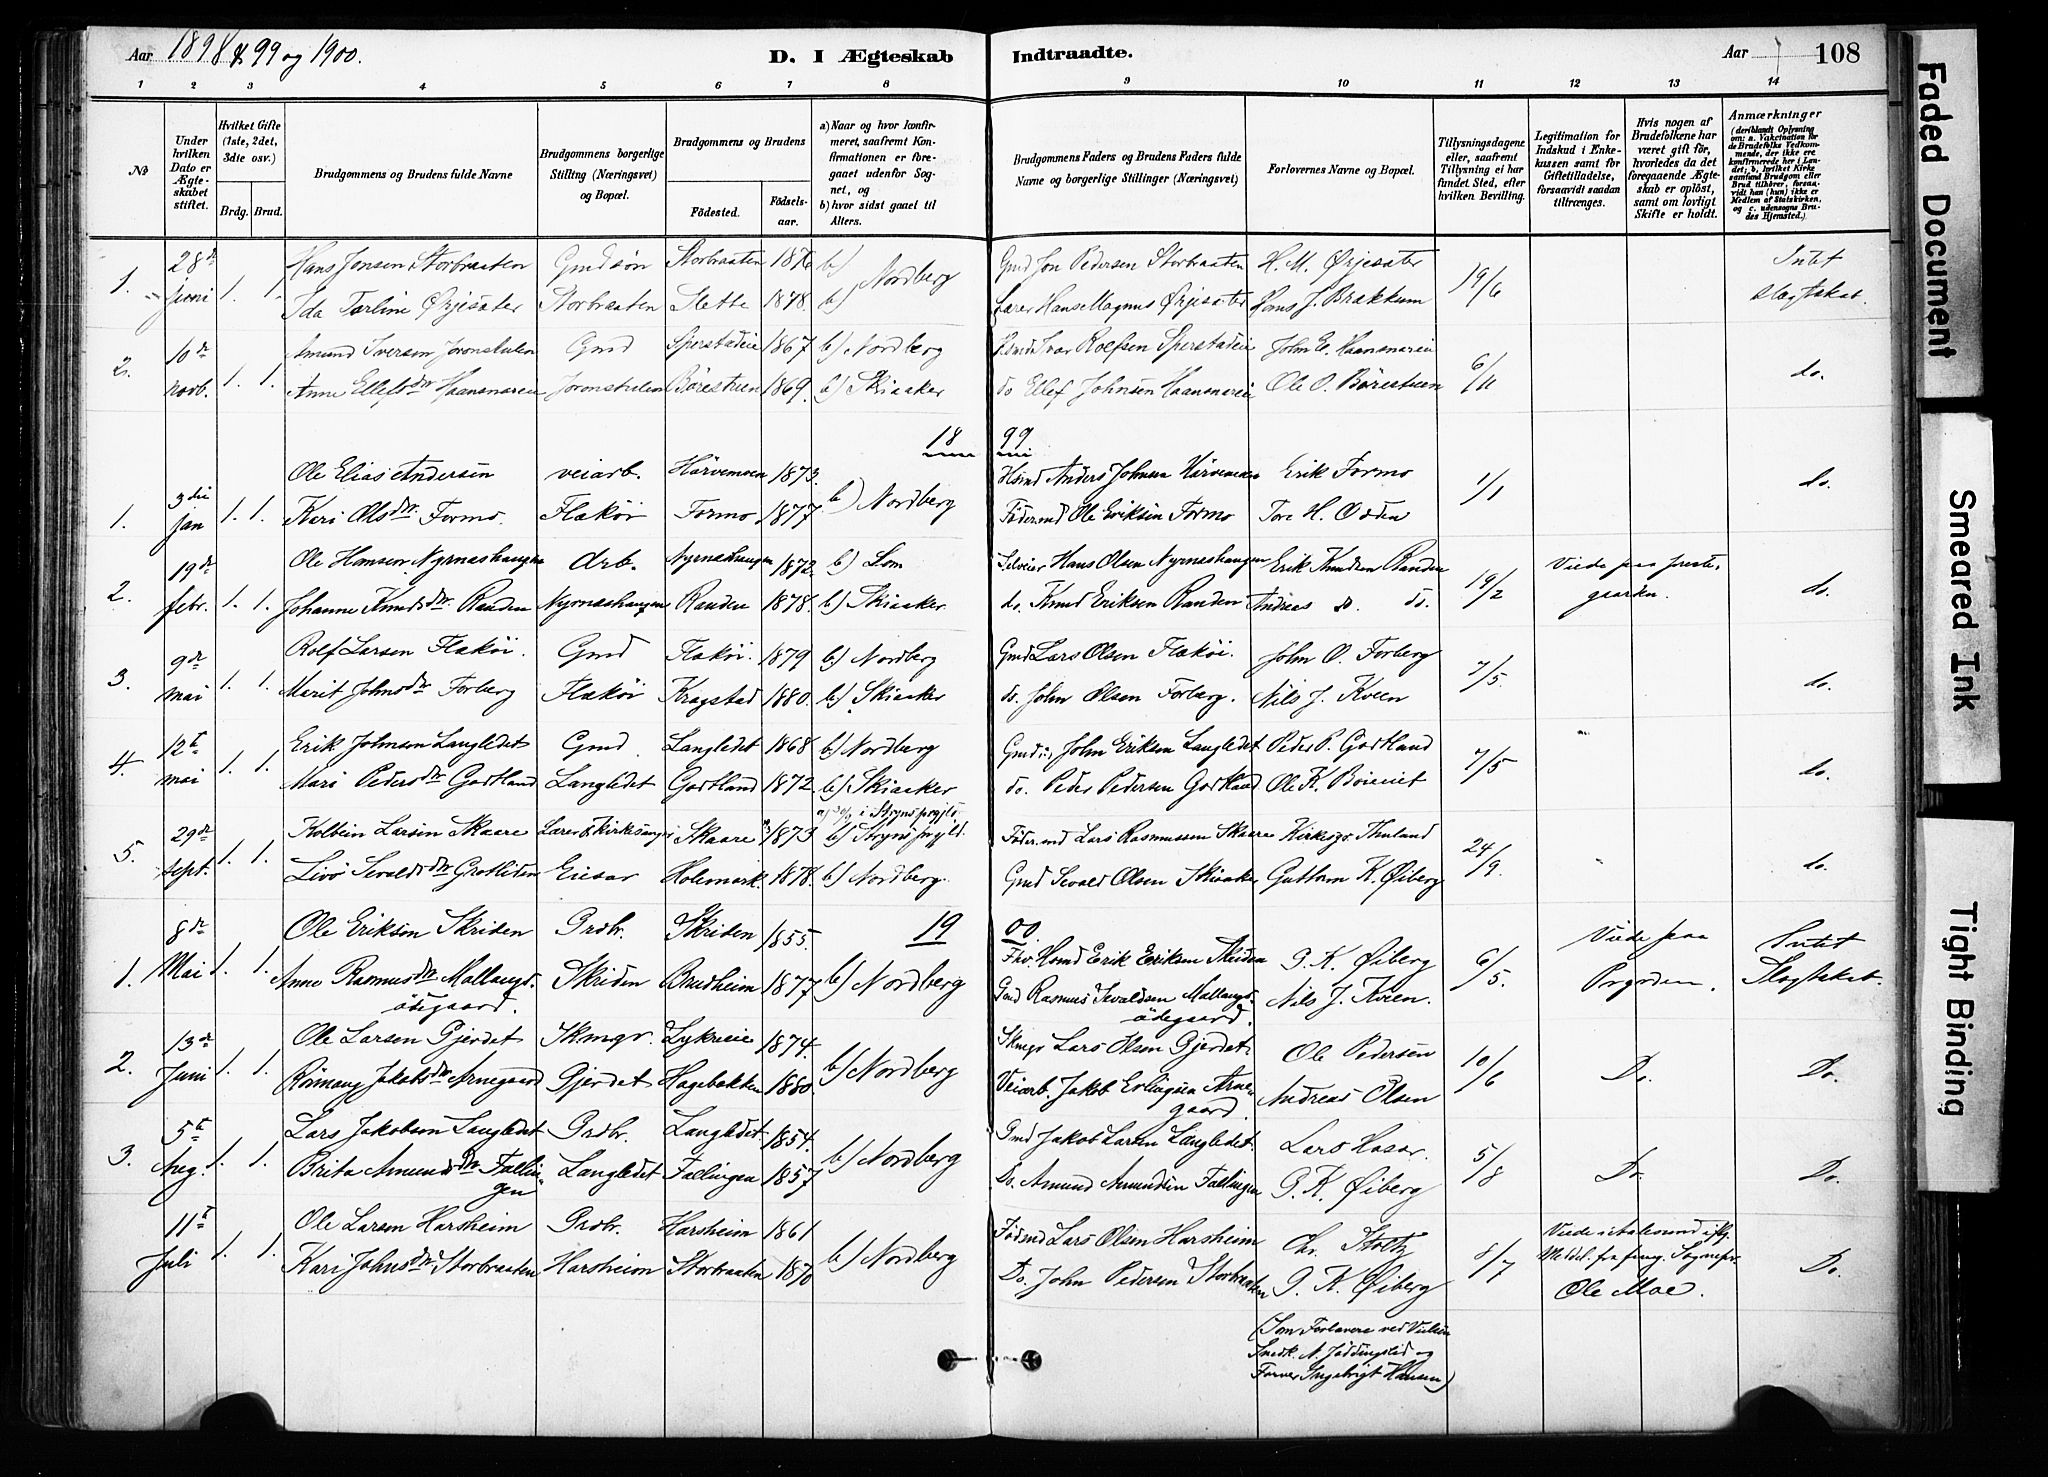 Aar 1898 & 99 og 1900.
D. I Ægteskab
Indtraadte.
Aar
108
1 2 3 4 5 6 7 8 9 10 11 12 13 14
№
Under hvilken Dato er Ægteskabet stiftet.
Hvilket Gifte (1ste, 2det, 3die osv.)
Brdg. Brud.
Brudgommens og Brudens fulde Navne
Brudgommens borgerlige Stilling (Næringsvei) og Bopæl.
Brudgommens og Brudens
Fødested.
Fødselsaar.
a) Naar og hvor konfirmeret, saafremt Konfirmationen er foregaaet udenfor Sognet, og
b) hvor sidst gaaet til Alters.
Brudgommens Faders og Brudens Faders fulde Navne og borgerlige Stillinger (Næringsvei)
Forlovernes Navne og Bopæl.
Tillysningsdagene eller, saafremt Tillysning ei har fundet Sted, efter hvilken Bevilling.
Legitimation for Indskud i Enkekassen samt for Giftetilladelse, forsaavidt saadan tiltrænges.
Hvis nogen af Brudefolkene har været gift før, hvorledes da det foregaaende Ægteskab er opløst, samt om lovligt Skifte er holdt.
Anmærkninger
(deriblandt Oplysning om: a. Vakcination for de Brudefolks Vedkommende, der ikke ere konfirmerede her i Landet; b. hvilket Kirkesamfund Brudgom eller Brud tilhører, forsaavidt han (hun) ikke er Medlem af Statskirken, og c. udensogns Brudes Hjemsted.)
1. 28de juni 1. 1. Hans Jonsen Storbraaten Gmdsøn Storbraaten 1876 b) Nordberg Gmd Jon Pedersen Storbraaten H. M. Ørjesæter 19/6 Intet
Ida Torline Ørjesæter Storbraaten Slette 1878. b) Lærer Hans Magnus Ørjesæter Hans J. Brækkum Slægtskab.
2. 10de novb. 1. 1. Amund Iversen Joronstulen Gmd Sperstadeie 1867 b) Nordberg Roefsen Sperstadeie John E. Haansnareie 6/11 do.
Anne Ellefsdtr Haansnareie Joronstulen Børestuen 1869. b) Skiaaker do Ellef Johnsen Haansnareie Ole O. Børestuen
1899
1. 3die jan 1. 1. Ole Elias Andersen veiarb. Harvemoen 1873. b) Nordberg Hsmd Anders Johnsen Erik Formo 1/1 do.
Kari Olsdtr. Formo. Flækøi Formo 1877 Fødermd Ole Eriksen Formo Tore H. Odden
2. 19de febr. 1. 1. Ole Hansen Nyrnæshaugen Arb. Nyrnæshaugen 1872. b) Lom Selveier Hans Olsen Nyrnæshaugen Erik Knudsen Randen 19/2 Viede paa preste-
Johanne Knudsdtr Randen Nyrnæshaugen Randen 1878. b) Skiaaker. do. Knud Eriksen Randen Andreas do. do. gaarden. do.
3. 9de mai 1. 1. Rolf Larsen Flækøi. Gmd Flækøi. 1879 b) Nordberg Gmd Lars Olsen Flækøi. John O. Forberg 7/5. do.
Marit Johnsdtr Forberg Flækøi Kragstad 1880. b) Skiaaker do. John Olsen Forberg. Nils J. Kveen
4. 12te mai 1. 1. Erik Johnsen Langledet Gmd. Langledet 1868 b) Nordberg Gmd John Eriksen Langledet Peder P. Godtland 7/5 do.
Mari Pedersdtr Godtland Langledet Godtland 1872. b) Skiaaker do. Peder Pedersen Godtland Ole K.
5. 29de sept. 1. 1. Kolbein Larsen Skaare Lærer & Kirkesanger Skaare 1873 a) i Stryns prgjld. b) Stryns prgjld. Føder.md Lars Rasmussen Skaare Kirkesgr. 24/9. do.
Livø Sevaldsdtr Grotliden Holemark. 1878. b) Nordberg. Gmd Sevald Olsen Skiaaker Guttorm K. Øiberg
1900.
1. 8de Mai 1. 1. Ole Eriksen Skriden Grdbr. Skriden 1855. b) Nordberg Fhv. Hsmd Erik Eriksen Skriden G. K. Øiberg 6/5. Viede paa Intet
Anne Rasmusdtr Mallangs- Skriden Brudheim 1877 Gmd Rasmus Sevaldsen Mallangs- Nils J. Kveen. Prgrden. Slægtskab.
ødegaard. ødegaard.
2. 13de Juni 1. 1. Ole Larsen Gjerdet Skmgr. Lykreeie 1874. b) Nordberg Skmgr Lars Olsen Gjerdet Ole Pedersen 10/6 Do. Do.
Rønnaug Jakobsdtr Arnegaard Gjerdet Hagebakken 1880. Veiarb. Jakob Erlingsen Arne- Andreas Olsen
gaard.
3. 5te Aug. 1. 1. Lars Jakobsen Langledet Grdbr. Langledet 1854. b) Nordberg Gmd Jakob Larsen Langledet Lars Hosar. 5/8 Do. Do.
Brita Amundsdtr Fallin- Langledet Fallingen 1857 Do. Amund Amundsen Fallingen G. K. Øiberg
gen
11te Juli 1. 1. Ole Larsen Harsheim Grdbr. Harsheim 1861 b) Nordberg Fødmd Lars Olsen Harsheim Chr. Stoltz 8/7 Viede i Aalesund iflg.
Kari Johnsdtr Storbraaten Harsheim Storbraaten 1870 Do. John Pedersen Storbraaten G. K. Øiberg Meddel. fra Sognepr.
Ole Moe. Do.
(Som Forlovere ved Vielsen
Snedk. N. og
Farver Ingebrigt Hansen)
Faded Document
Smeared Ink
Tight Binding